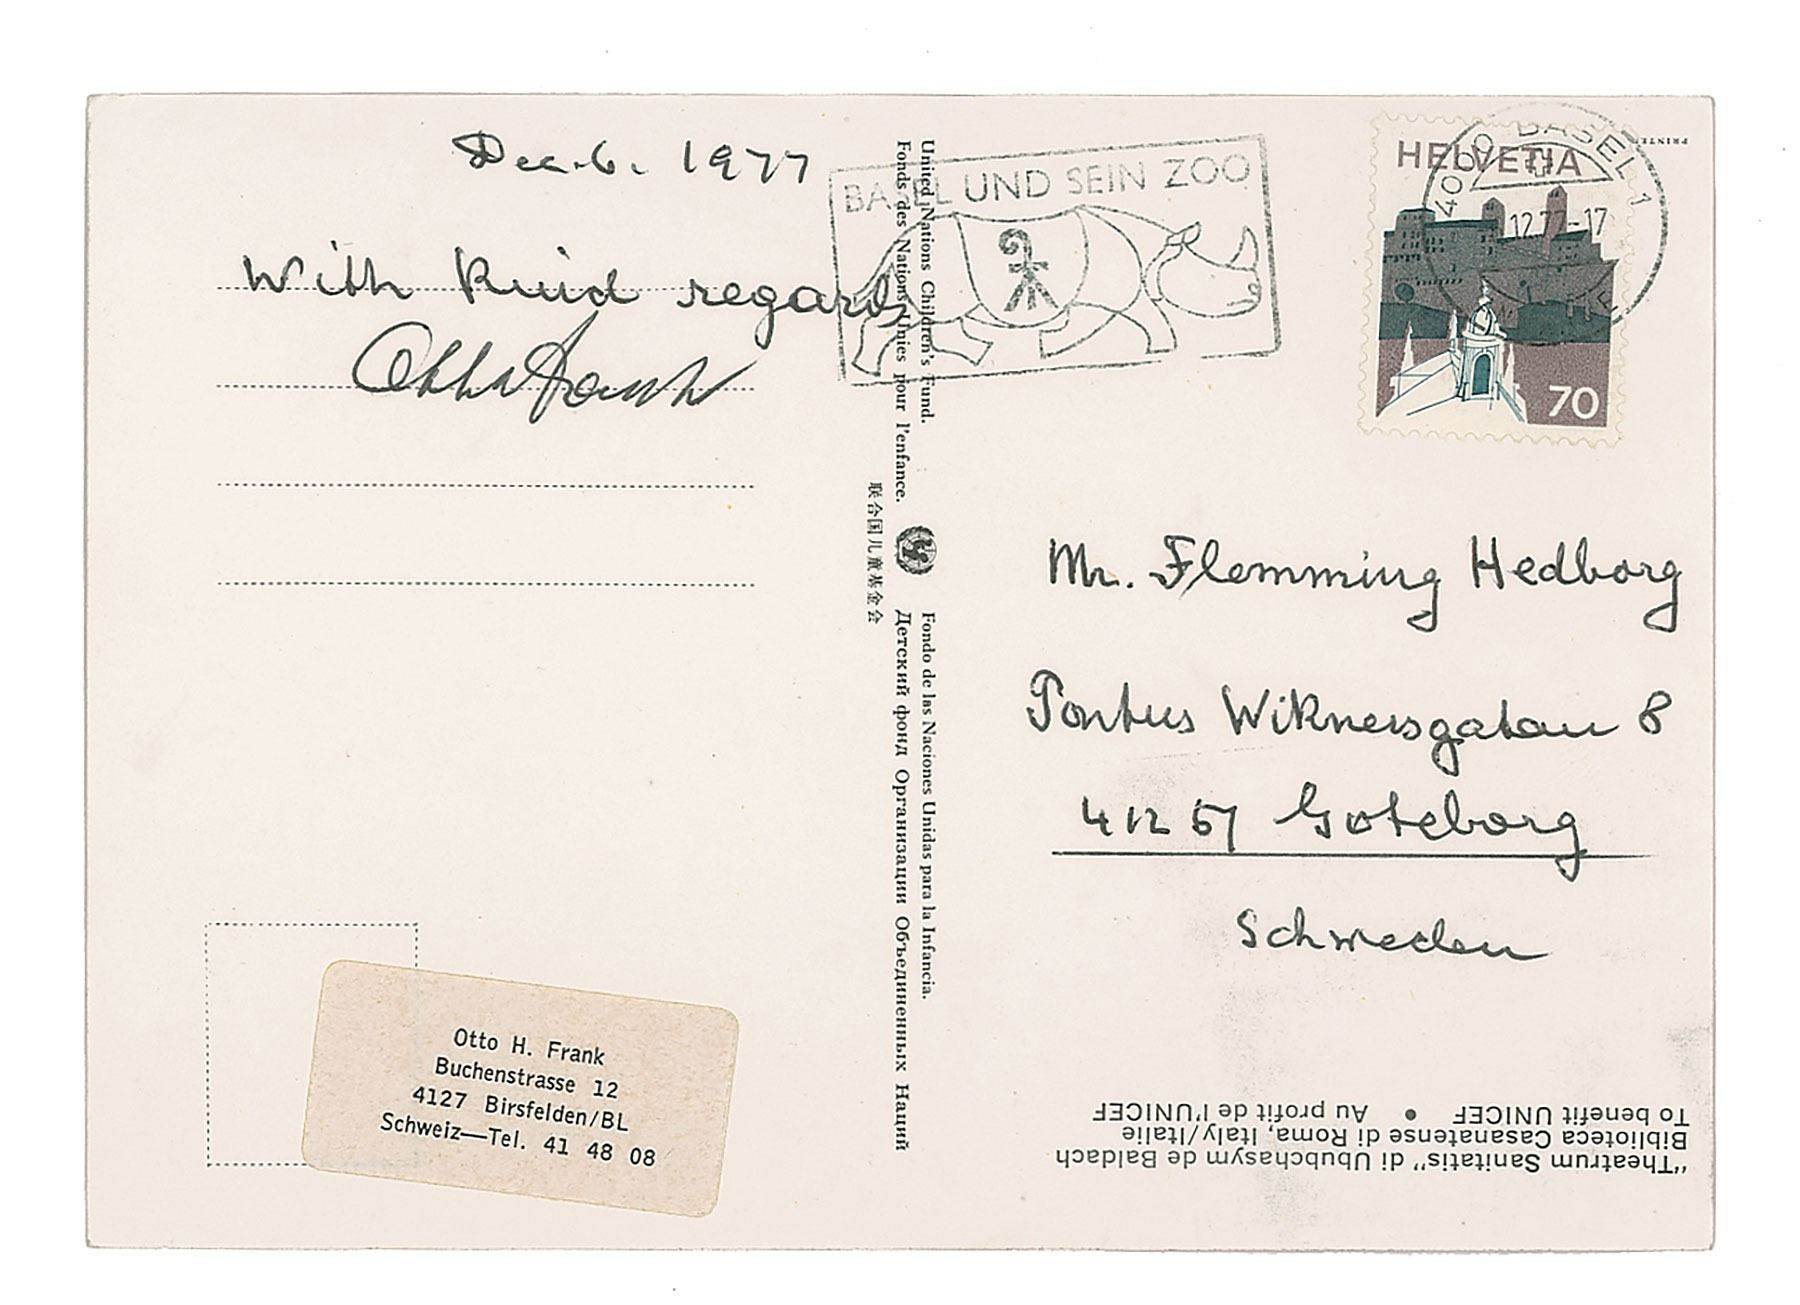 Dec. 6. 1977
With kind regards
Otto Frank
Otto H. Frank
Buchenstrasse 12
4127 Birsfelden/BL
Schweiz—Tel. 41 48 08
United Nations Children's Fund.
Fonds des Nations Unies pour l'enfance.
联合国儿童基金会
Fondo de las Naciones Unidas para la Infancia.
Детский фонд Организации Объединенных Наций
BASEL UND SEIN ZOO
HELVETIA
70
4000 BASEL 1
12.77-17
PRINTE
Mr. Flemming Hedborg
Pontus Wiknersgatan 8
41257 Goteborg
Schweden
"Theatrum Sanitatis" di Ububchasym de Baldach
Biblioteca Casanatense di Roma, Italy/Italie
To benefit UNICEF • Au profit de l'UNICEF